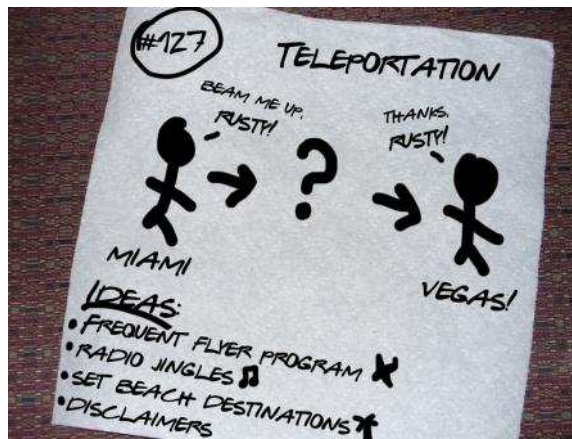 #127
TELEPORTATION
BEAM ME UP,
RUSTY!
THANKS,
RUSTY!
?
MIAMI
VEGAS!
IDEAS:
• FREQUENT FLYER PROGRAM
• RADIO JINGLES
• SET BEACH DESTINATIONS
• DISCLAIMERS